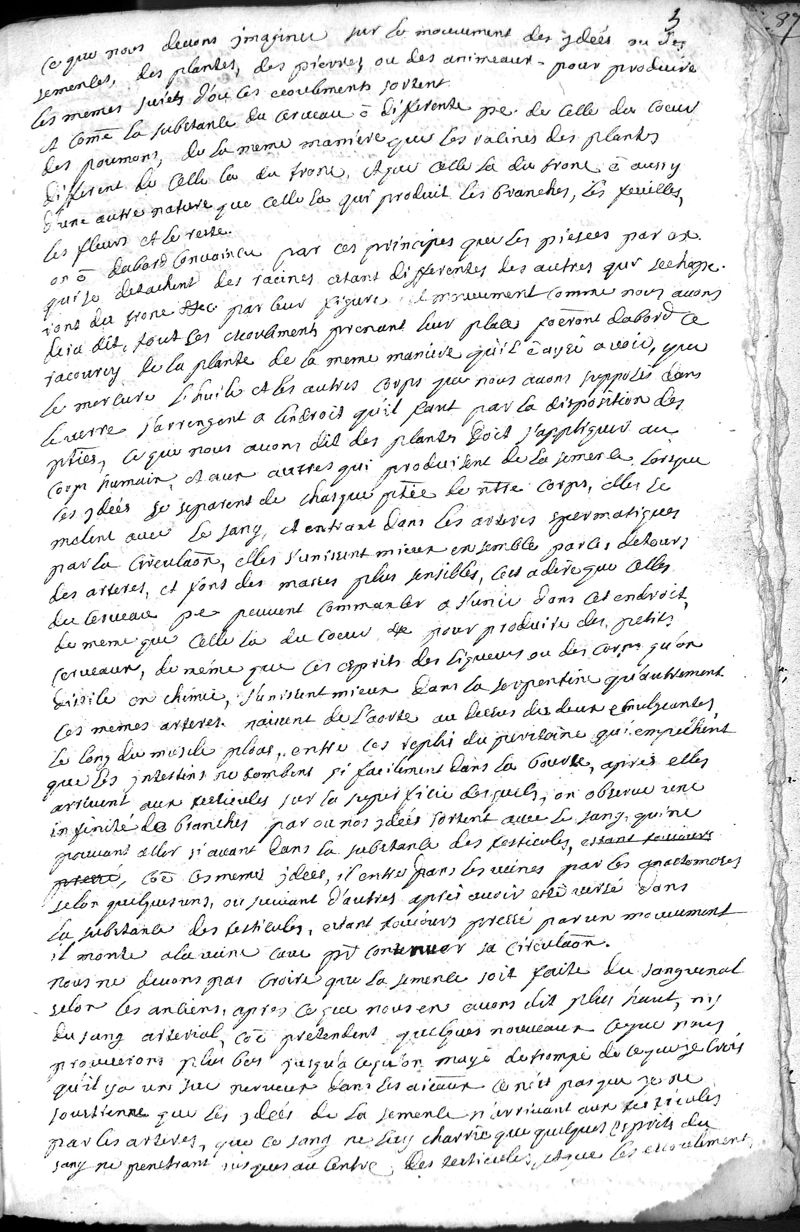 3
87
Ce que nous devons jmaginer sur le mouvement des jdeés ou des
semences, des plantes, des pierres, ou des animeaux pour produire
les memes sujets d'ou ces ecoulements sortent
et come la substance du cerveau ē differente pe. de celle du coeur
des poumons, de la meme maniere que les racines des plantes
different de celle la du tronc, et que celle la du tronc ē aussy
d'une autre nature que celle la qui produit les branches, les feuilles,
les fleurs et le reste.
on ē dabord convaincu par ces principes que les piesees par ex.
qui se detachent des racines etant differentes des autres qui sechape-
ront du tronc &c par leur figure et mouvement comme nous avons
deja dit, tout ces ecoulements prenant leur place formeront dabord ce
racourcy de la plante de la meme maniere qu'il ē ayeé a voir, que
le mercure l'huile et les autres corps que nous avons supposés dans
le verre s'arrengent a lendroit qu'il faut par la disposition des
pties, ce que nous avons dit des plantes doit s'appliquer au
corps humain, et aux autres qui produisent de la semence, lorsque
ces jdeés se separent de chasque ptie de ntre corps, elles se
melent avec le sang, et entrant dans les arteres spermatiques
par la circulaōn, elles s'unissent mieux ensemble par les detours
des arteres, et font des masses plus sensibles, c'est a dire que celles
du cerveau pe peuvent commancer a s'unir dans cet endroit
de meme que celle la du coeur &c pour produire des petits
cerveaux, de méme que ces esprits des liqueurs ou des corps qu'on
distile en chimie, s'unissent mieux dans la serpentine qu'autrement
Ces memes arteres naissent de l'aorte au dessus des deux emulgeantes
le long du muscle psoas, entre ces replis du peritoine qui empéchent
que les jntestins ne tombent si facilement dans la bourse, aprés elles
arrivent aux testicules sur la superficie desquels, on observe une
infinité de branches par ou nos jdeés sortent avec le sang, qui ne
pouvant aller s'avant dans la substance des testicules, estant tousiours
pressé, coē ces memes jdeés, il entre dans les veines par les anactomoses
selon quelques uns, ou suivant d'autres aprés avoir esté versé dans
la substance des testicules, etant tousiours pressé par un mouvement
il monte a la veine cave pr continuer sa circulaōn.
nous ne devons pas croire que la semence soit faite du sang venal
selon les anciens, apres ce que nous en avons dit plus haut, nis
du sang arterial, coē pretendent quelques nouveaux ce que nous
prouverons plus bas jusqu'a ce qu'on m'aye detrompé de ce que je crois
qu'il y a un suc nerveux dans les animaux ce n'est pas que je ne
soustienne que les jdeés de la semence n'arrivent aux testicules
par les arteres, que ce sang ne luy charrie que quelques esprits du
sang ne penetrant jusques au centre, des testicules, et que les ecoulements